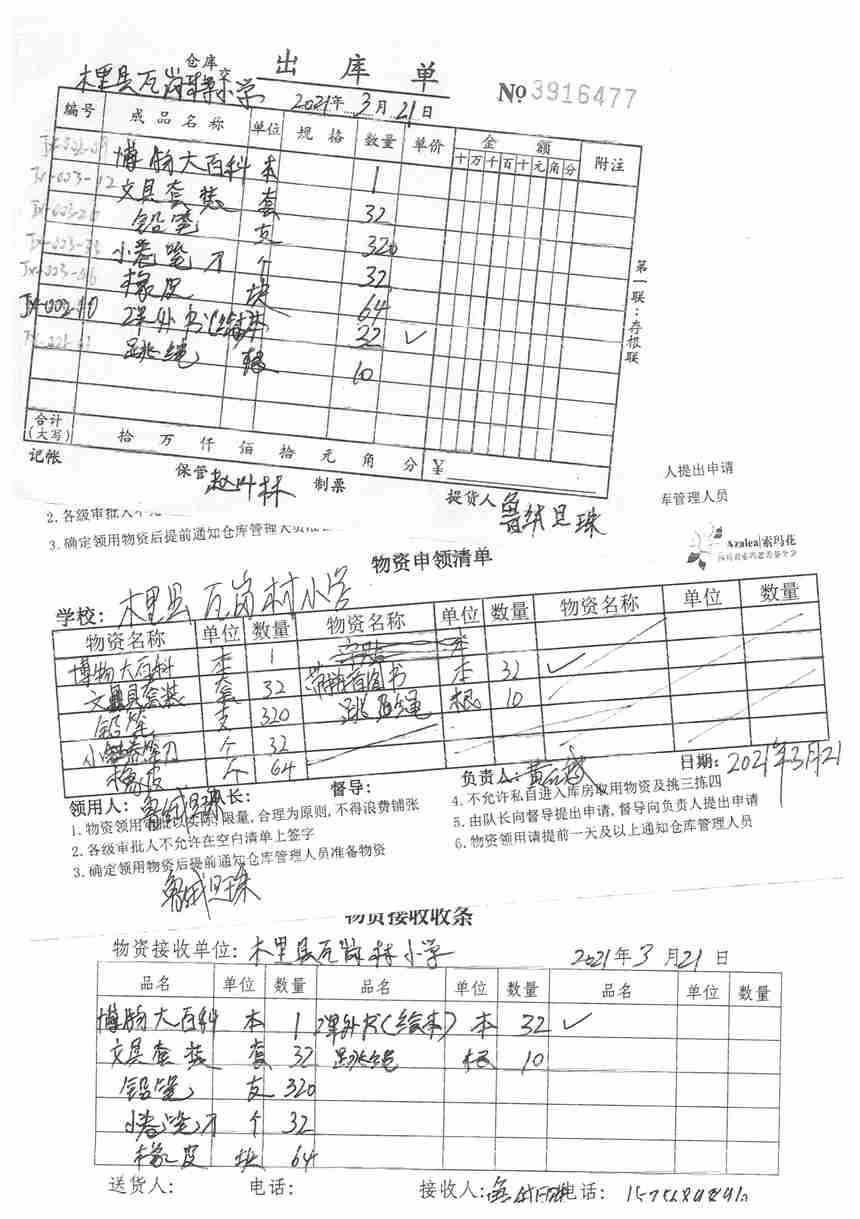 仓库 出库单
木里县瓦岗村小学 2021年3月21日 № 3916477
编号 成品名称 单位 规格 数量 单价 金额 附注
十万千百十元角分
博物大百科 本 1
文具套装 套 32
铅笔 支 320
小卷笔刀 个 32
橡皮 块 64
课外书(绘本) 32 ✓
跳绳 根 10
第一联:存根联
合计(大写) 拾 万 仟 佰 拾 元 角 分 ¥
记帐 保管 制票 提货人
人提出申请
2.各级审批人
库管理人员
3.确定领用物资后提前通知仓库管理人员
Azalea|索玛花
物资申领清单
学校:木里县瓦岗村小学
物资名称 单位 数量 物资名称 单位 数量 物资名称 单位 数量
博物大百科 本 1 本
文具套装 套 32 图书 本 32 ✓
铅笔 支 320 跳绳 根 10
小卷笔刀 个 32
橡皮 个 64
领用人: 长: 督导: 负责人: 日期:2021年3月21
1.物资领用 限量,合理为原则,不得浪费铺张
2.各级审批人不允许在空白清单上签字
3.确定领用物资后提前通知仓库管理人员准备物资
4.不允许私自进入库房取用物资及挑三拣四
5.由队长向督导提出申请,督导向负责人提出申请
6.物资领用请提前一天及以上通知仓库管理人员
物资接收收条
物资接收单位:木里县瓦岗村小学 2021年3月21日
品名 单位 数量 品名 单位 数量 品名 单位 数量
博物大百科 本 1 课外书(绘本) 本 32 ✓
文具套装 套 32 跳绳 根 10
铅笔 支 320
小卷笔刀 个 32
橡皮 块 64
送货人: 电话: 接收人: 电话: